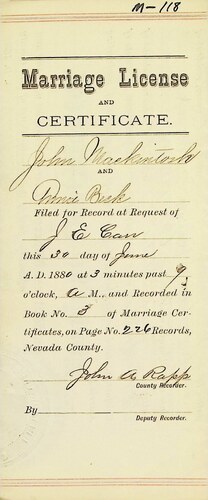 M-118
Marriage License
AND
CERTIFICATE.
John Mackintosh
AND
Beck
Filed for Record at Request of
J E Carr
this 30 day of June
A. D. 1880 at 3 minutes past 9
o'clock, A M., and Recorded in
Book No. 3 of Marriage Cer-
tificates, on Page No. 226 Records,
Nevada County.
John A Rapp
County Recorder.
By
Deputy Recorder.